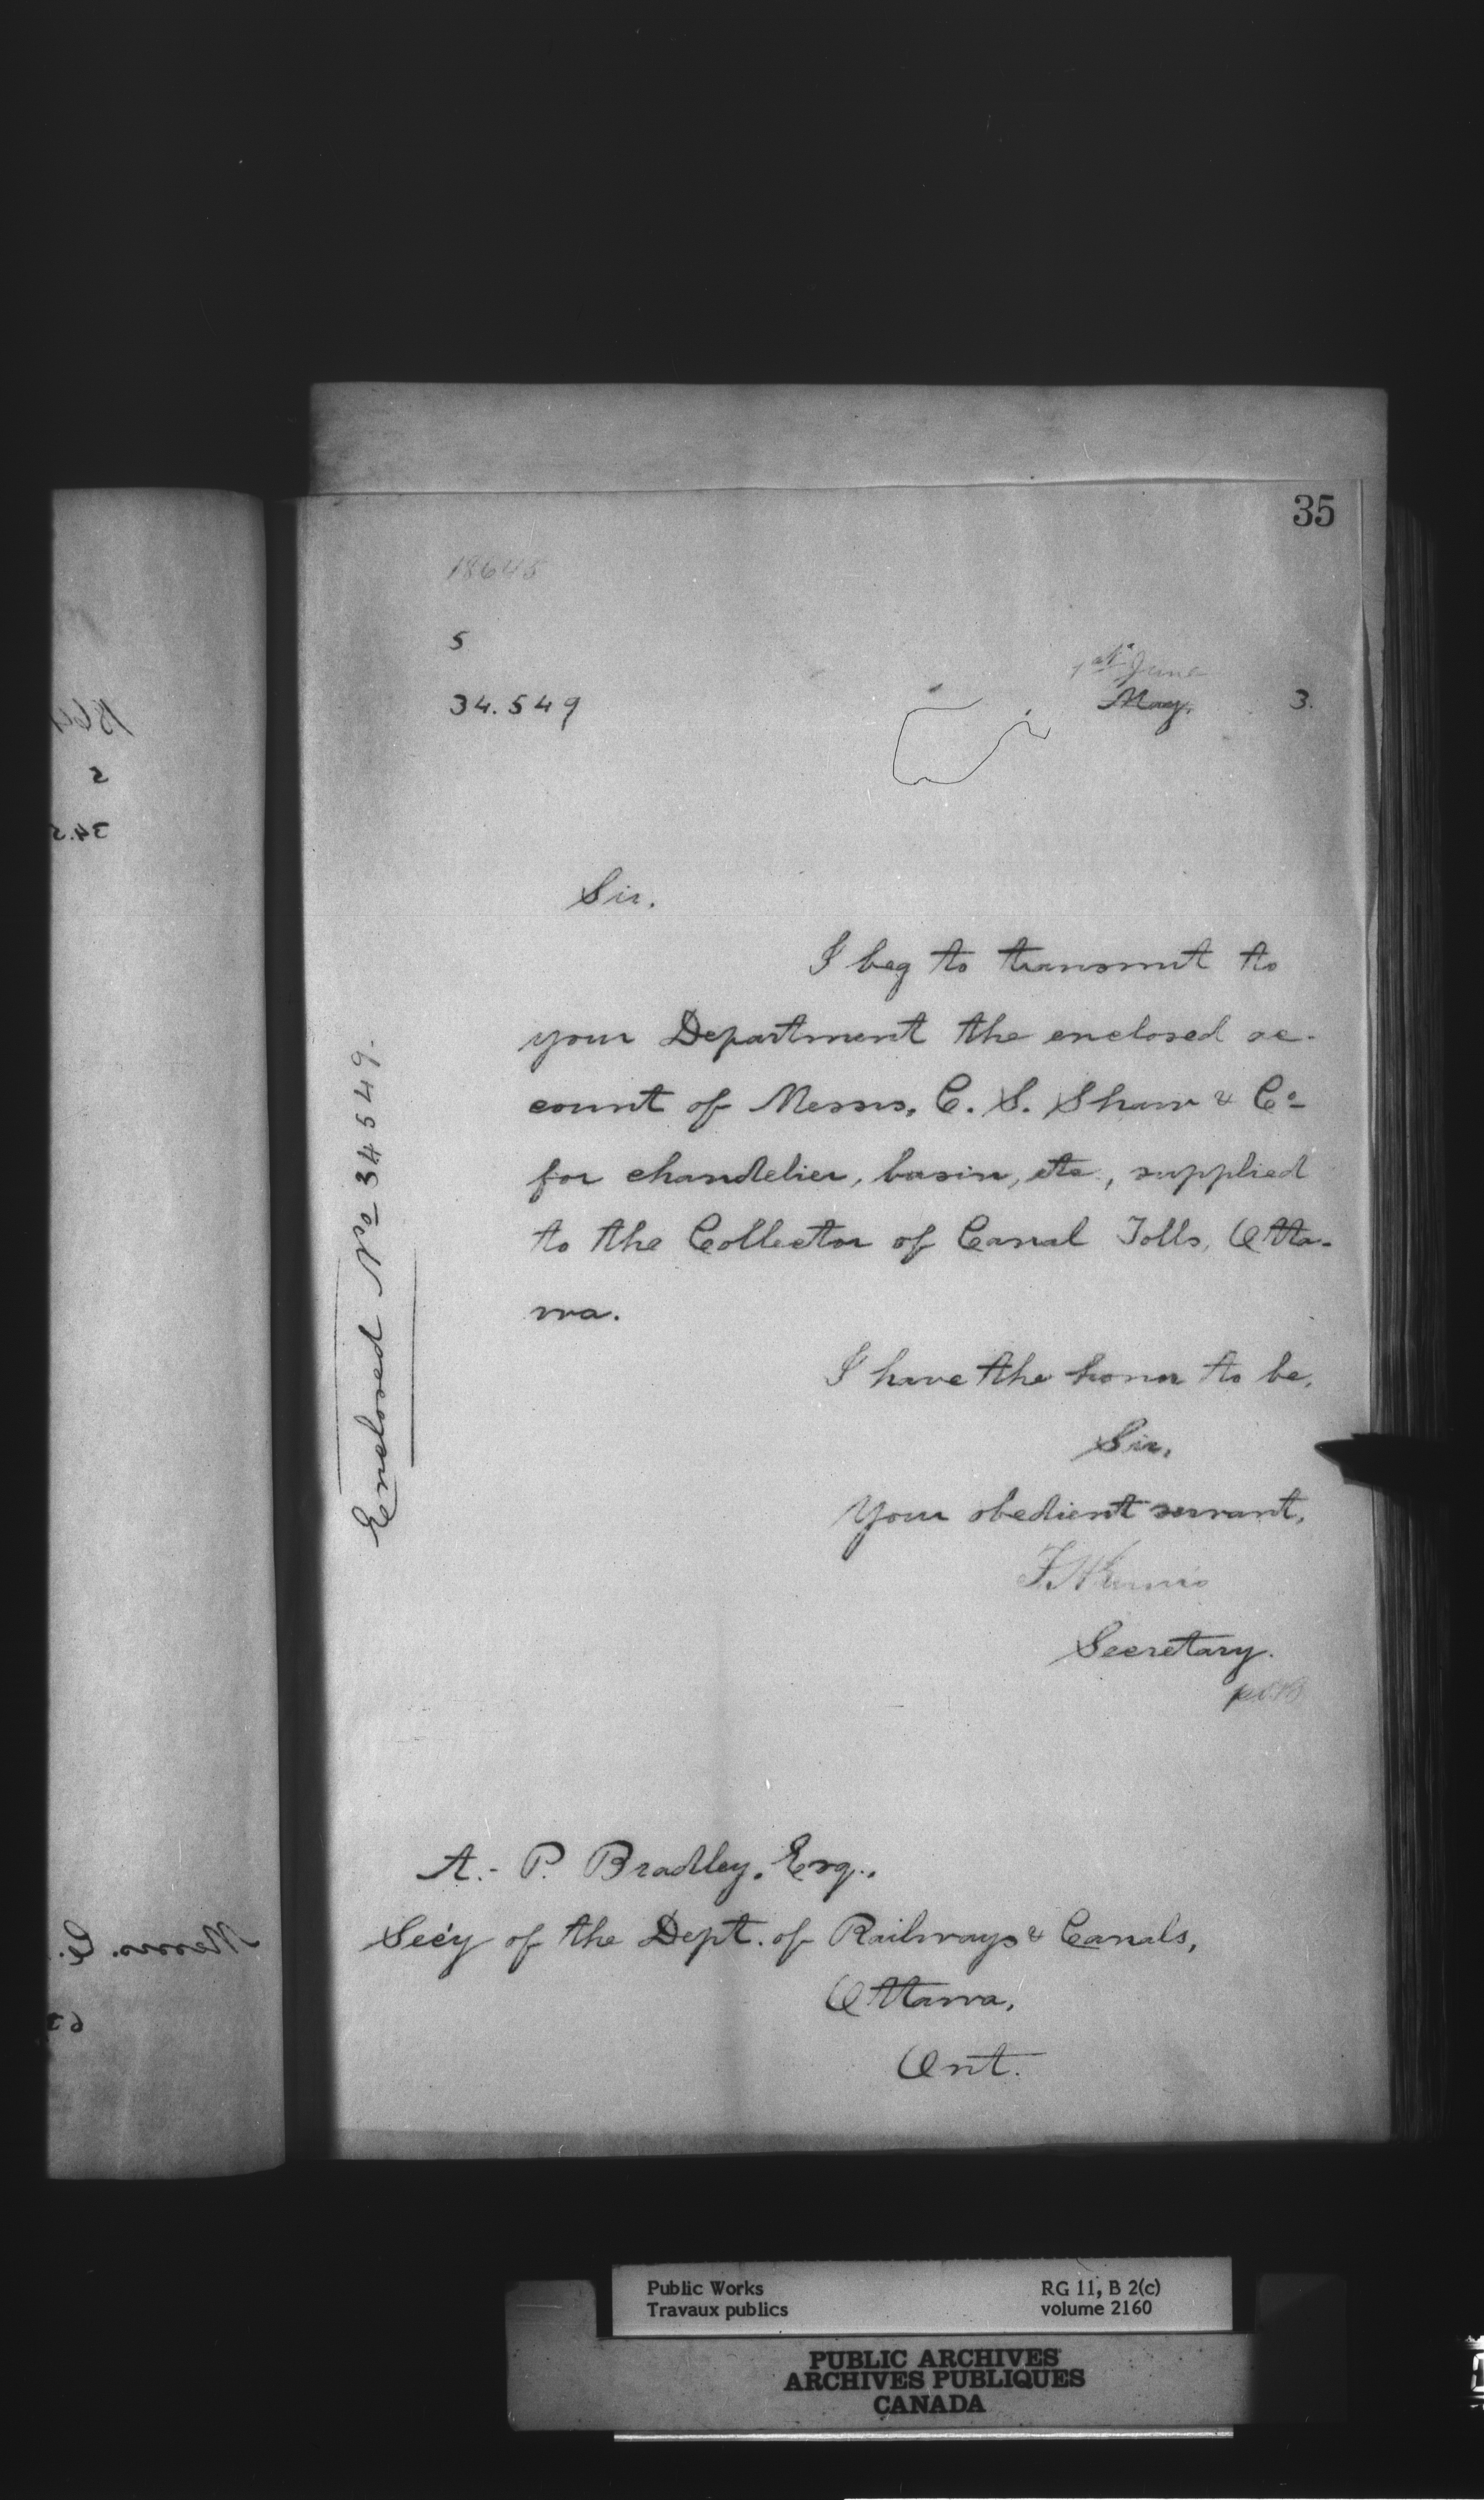 35
18645
5
1st June
34.549 May, 3.
Sir.
I beg to transmit to
your Department the enclosed ac-
count of Messrs. C. S. Shaw & Co
for chandelier, basin, etc., supplied
to the Collector of Canal Tolls, Otta-
wa.
I have the honor to be,
Sir,
Your obedient servant,
Secretary.
Enclosed No 34549.
A. P. Bradley, Esq.,
Sec'y of the Dept. of Railways & Canals,
Ottawa,
Ont.
Public Works RG 11, B 2(c)
Travaux publics volume 2160
PUBLIC ARCHIVES
ARCHIVES PUBLIQUES
CANADA